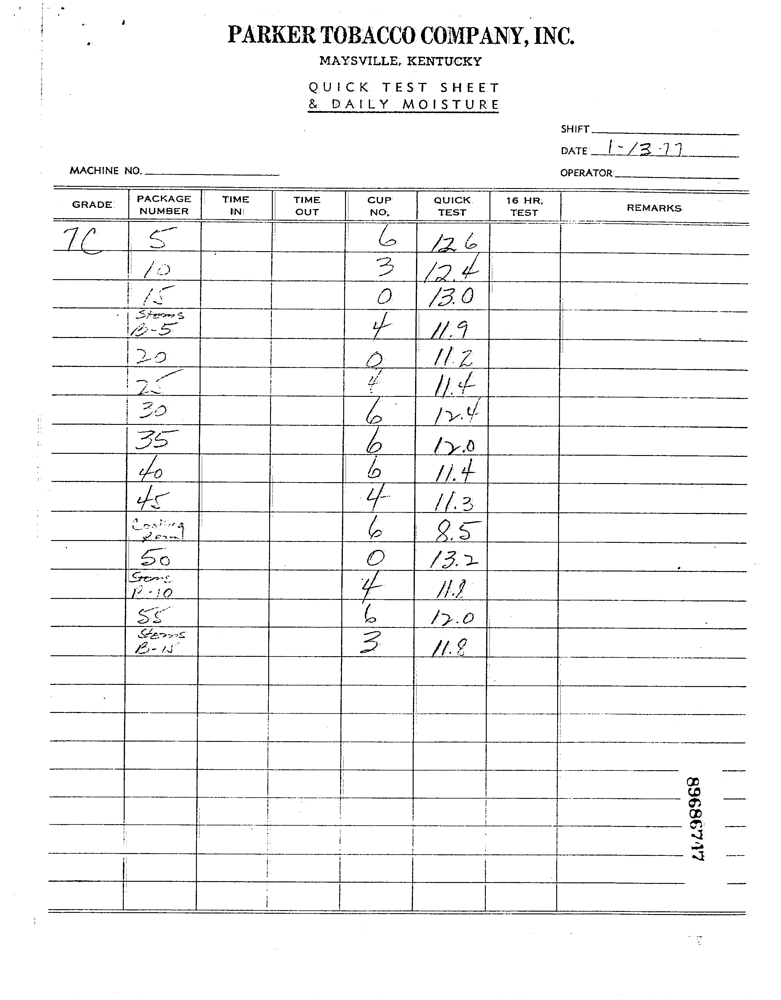 PARKER TOBACCO COMPANY, INC.
MAYSVILLE, KENTUCKY
QUICK TEST SHEET
& DAILY MOISTURE
SHIFT
DATE 1-13-77
MACHINE NO.
OPERATOR
GRADE PACKAGE NUMBER TIME IN TIME OUT CUP NO. QUICK TEST 16 HR. TEST REMARKS
7C 5 6 12.6
10 3 12.4
15 0 13.0
Stems
B-5 4 11.9
20 0 11.2
25 4 11.4
30 6 12.4
35 6 12.0
40 6 11.4
45 4 11.3
Cooling
Room 6 8.5
50 0 13.2
Stems
B-10 4 11.8
55 6 12.0
Stems
B-15 3 11.8
89686747